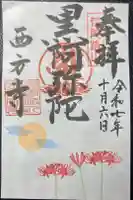 奉拝
令和七年
十月六日
黒阿弥陀
西方寺